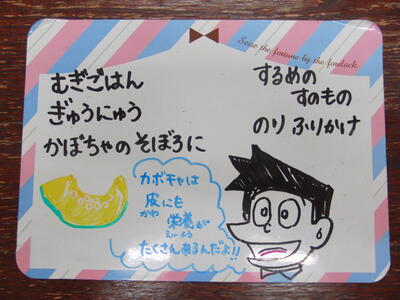 Seize the fortune by the forelock.
むぎごはん
ぎゅうにゅう
かぼちゃの そぼろに
するめの
すのもの
のり ふりかけ
カボチャは
皮にも
かわ
栄養が
えいよう
たくさんあるんだよ!!